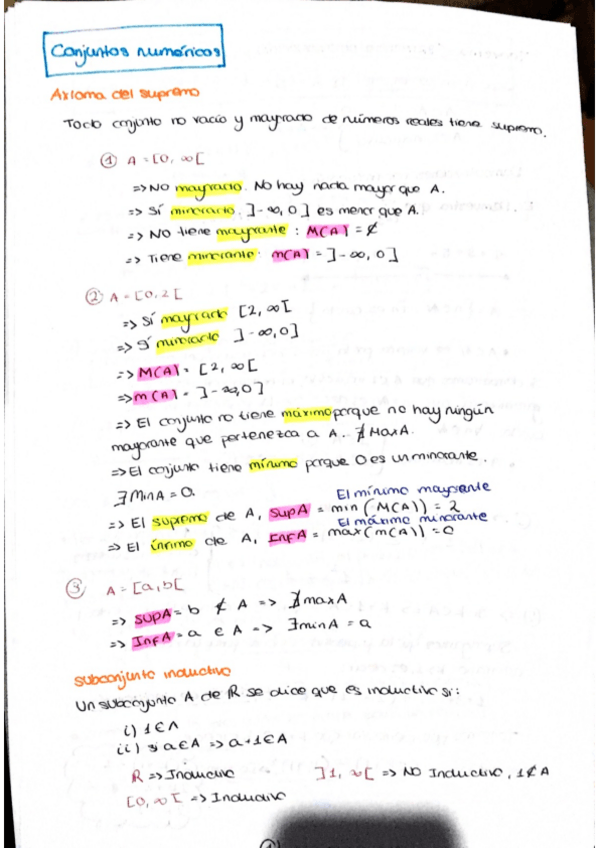 Conjuntos numéricos
Axioma del supremo
Todo conjunto no vacío y mayorado de números reales tiene supremo.
① A = [0, ∞[
=> NO mayorado. No hay nada mayor que A.
=> Sí minorado. ]-∞, 0] es menor que A.
=> NO tiene mayorante: M(A) = ∉
=> Tiene minorante: m(A) = ]-∞, 0]
② A = [0, 2[
=> Sí mayorado [2, ∞[
=> Sí minorante ]-∞, 0]
=> M(A) = [2, ∞[
=> m(A) = ]-∞, 0]
=> El conjunto no tiene máximo porque no hay ningún
mayorante que pertenezca a A. ∄ Max A.
=> El conjunto tiene mínimo porque 0 es un minorante.
∃ Min A = 0.
El mínimo mayorante
=> El supremo de A, Sup A = min (M(A)) = 2
El máximo minorante
=> El ínfimo de A, Inf A = max (m(A)) = 0
③ A = [a, b[
=> Sup A = b ∉ A => ∄ max A
=> Inf A = a ∈ A => ∃ min A = a
Subconjunto inductivo
Un subconjunto A de ℝ se dice que es inductivo si:
i) 1 ∈ A
ii) si a ∈ A => a+1 ∈ A
ℝ => Inductivo ]1, ∞[ => NO Inductivo, 1 ∉ A
[0, ∞[ => Inductivo